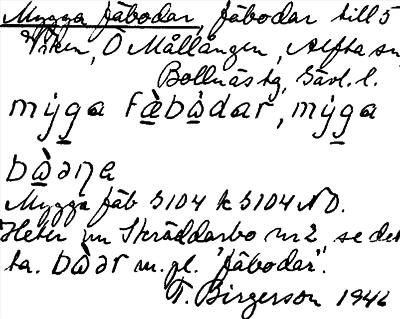 Mygga fäbodar, fäbodar till 5
Viken, Ö Mållången, Alfta sn
Bollnäs tg, Gävl. l.
mýga fæ̀bòdar, mýga
bɷ̀əṇa
Mygga fäb 5104 k 5104 NO.
Heter nu Skräddarbo nr 2, se det
ta. bɷ̀ər m. pl. "fäbodar".
T. Birgerson 1946